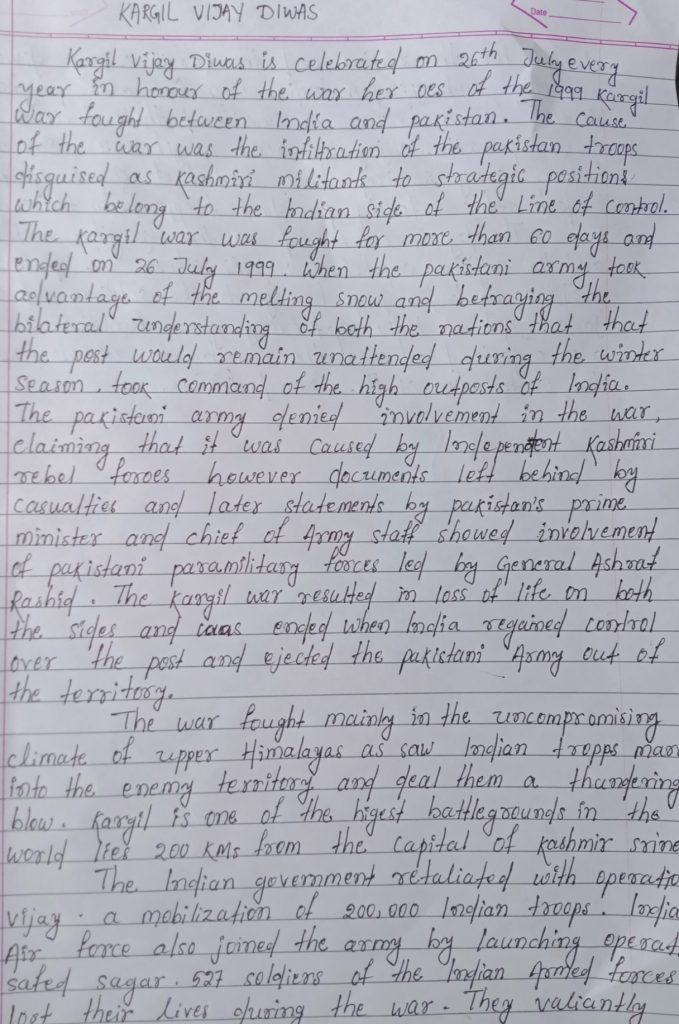 KARGIL VIJAY DIWAS
Date
Kargil Vijay Diwas is celebrated on 26th July every
year in honour of the war her oes of the 1999 Kargil
War fought between India and pakistan. The cause
of the war was the infiltration of the pakistan troops
disguised as Kashmiri militants to strategic positions
which belong to the Indian side of the Line of control.
The Kargil war was fought for more than 60 days and
ended on 26 July 1999. When the pakistani army took
advantage of the melting snow and betraying the
bilateral understanding of both the nations that that
the post would remain unattended during the winter
season, took command of the high outposts of India.
The pakistani army denied involvement in the war,
claiming that it was caused by Independent Kashmiri
rebel forces however documents left behind by
casualties and later statements by pakistan's prime
minister and chief of Army staff showed involvement
of pakistani paramilitary forces led by General Ashraf
Rashid. The Kargil war resulted in loss of life on both
the sides and was ended when India regained control
over the post and ejected the pakistani Army out of
the territory.
The war fought mainly in the uncompromising
climate of upper Himalayas as saw Indian tropps mar
into the enemy territory and deal them a thundering
blow. Kargil is one of the higest battlegrounds in the
world lies 200 KMs from the capital of Kashmir srine
The Indian government retaliated with operatio
vijay. a mobilization of 200,000 Indian troops. India
Air force also joined the army by launching operat
safed sagar. 527 soldiers of the Indian Armed forces
lost their lives during the war. They valiantly